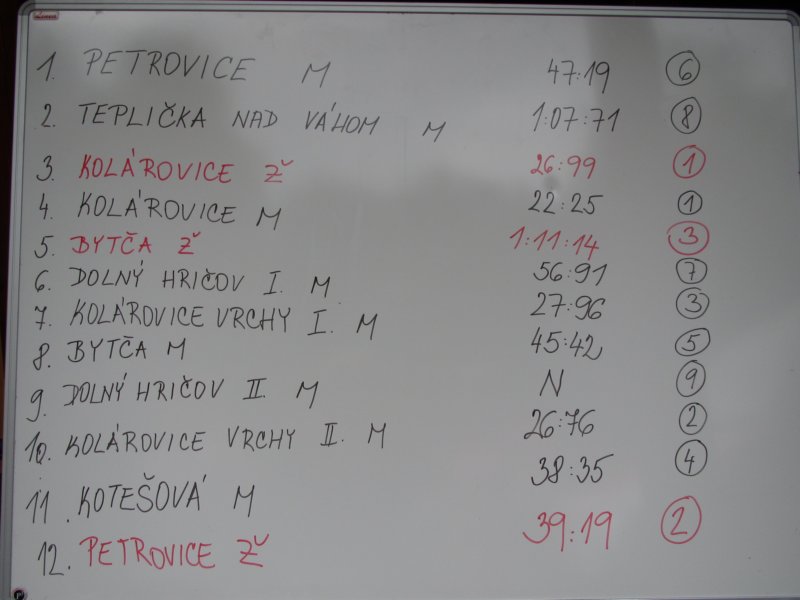 1. PETROVICE M 47:19 6
2. TEPLIČKA NAD VÁHOM M 1:07:71 8
3. KOLÁROVICE Ž 26:99 1
4. KOLÁROVICE M 22:25 1
5. BYTČA Ž 1:11:14 3
6. DOLNÝ HRIČOV I. M 56:91 7
7. KOLÁROVICE VRCHY I. M 27:96 3
8. BYTČA M 45:42 5
9. DOLNÝ HRIČOV II. M N 9
10. KOLÁROVICE VRCHY II. M 26:76 2
11. KOTEŠOVÁ M 38:35 4
12. PETROVICE Ž 39:19 2